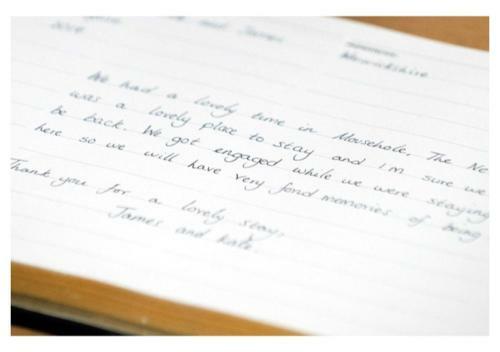 and James
2019
Warwickshire
We had a lovely time in Mousehole. The Ne
was a lovely place to stay and i'm sure we
be back. We got engaged while we were staying
here so we will have very fond memories of being
Thank you for a lovely stay,
James and Kate.